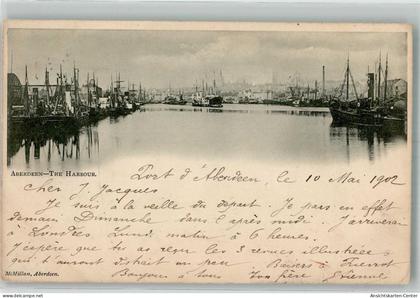 ABERDEEN—THE HARBOUR.
Port d'Aberdeen, le 10 Mai 1902
Cher J. Jacques
Je suis à la veille du départ. Je pars en effet
demain Dimanche dans l'après midi. J'arriverai
à Londres Lund. matin à 6 heures.
J'espère que tu as reçu les 3 revues illustrées
qui t'auront distrait un peu Baisers à Pierrot
Bonjour à tous Ton frère Etienne
McMillan, Aberdeen.
www.ansichtskarten-center.de